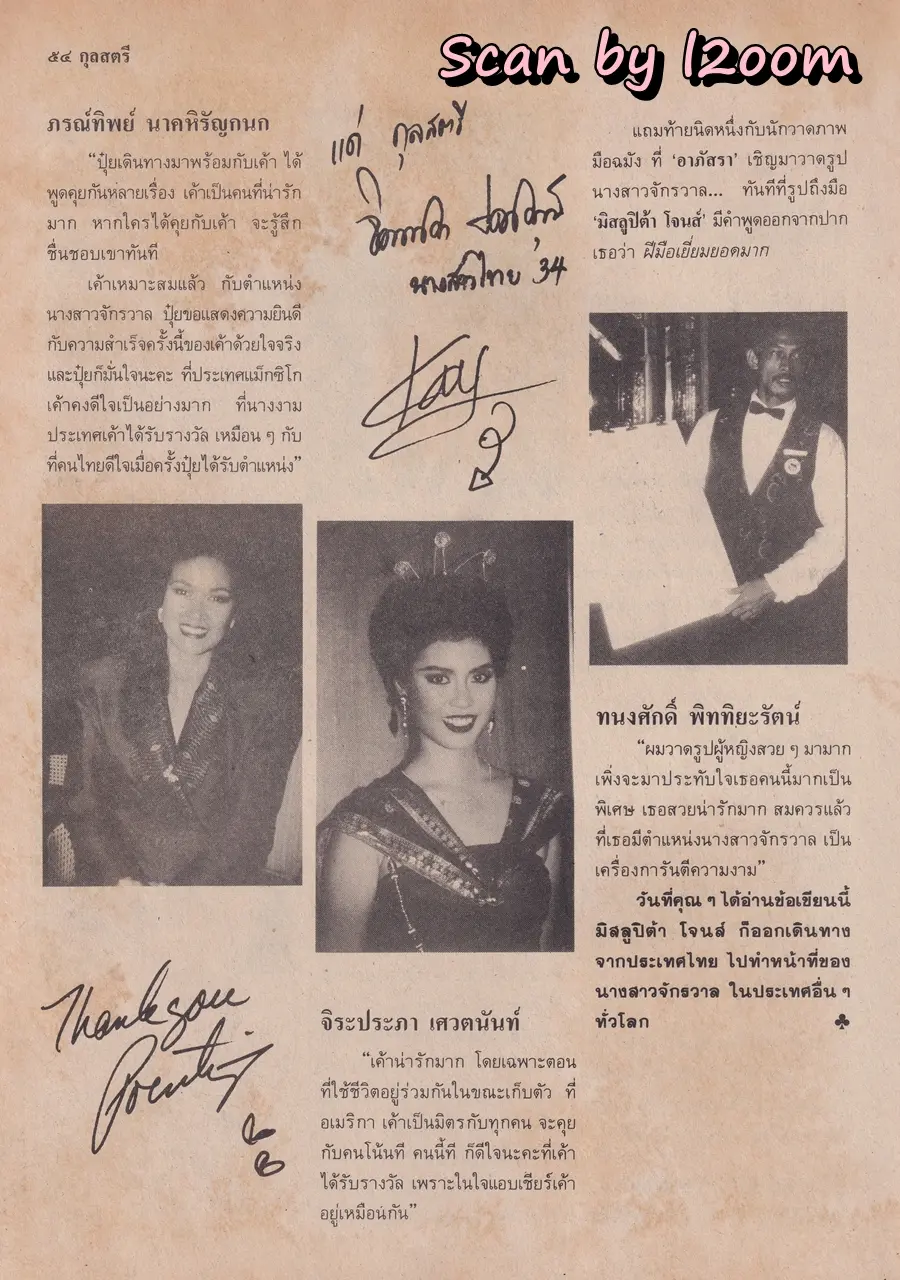 ๕๔ กุลสตรี
Scan by l2oom
ภรณ์ทิพย์ นาคหิรัญกนก
“ปุ๋ยเดินทางมาพร้อมกับเค้า ได้
พูดคุยกันหลายเรื่อง เค้าเป็นคนที่น่ารัก
มาก หากใครได้คุยกับเค้า จะรู้สึก
ชื่นชอบเขาทันที
เค้าเหมาะสมแล้ว กับตำแหน่ง
นางสาวจักรวาล ปุ๋ยขอแสดงความยินดี
กับความสำเร็จครั้งนี้ของเค้าด้วยใจจริง
และปุ๋ยก็มั่นใจนะคะ ที่ประเทศแม็กซิโก
เค้าคงดีใจเป็นอย่างมาก ที่นางงาม
ประเทศเค้าได้รับรางวัล เหมือน ๆ กับ
ที่คนไทยดีใจเมื่อครั้งปุ๋ยได้รับตำแหน่ง”
Thank you
แด่ กุลสตรี
นางสาวไทย '34
จิระประภา เศวตนันท์
“เค้าน่ารักมาก โดยเฉพาะตอน
ที่ใช้ชีวิตอยู่ร่วมกันในขณะเก็บตัว ที่
อเมริกา เค้าเป็นมิตรกับทุกคน จะคุย
กับคนโน้นที คนนี้ที ก็ดีใจนะคะที่เค้า
ได้รับรางวัล เพราะในใจแอบเชียร์เค้า
อยู่เหมือนกัน”
แถมท้ายนิดหนึ่งกับนักวาดภาพ
มือฉมัง ที่ ‘อาภัสรา’ เชิญมาวาดรูป
นางสาวจักรวาล... ทันทีที่รูปถึงมือ
‘มิสลูปิต้า โจนส์’ มีคำพูดออกจากปาก
เธอว่า ฝีมือเยี่ยมยอดมาก
ทนงศักดิ์ พิททิยะรัตน์
“ผมวาดรูปผู้หญิงสวย ๆ มามาก
เพิ่งจะมาประทับใจเธอคนนี้มากเป็น
พิเศษ เธอสวยน่ารักมาก สมควรแล้ว
ที่เธอมีตำแหน่งนางสาวจักรวาล เป็น
เครื่องการันตีความงาม”
วันที่คุณ ๆ ได้อ่านข้อเขียนนี้
มิสลูปิต้า โจนส์ ก็ออกเดินทาง
จากประเทศไทย ไปทำหน้าที่ของ
นางสาวจักรวาล ในประเทศอื่น ๆ
ทั่วโลก ♣